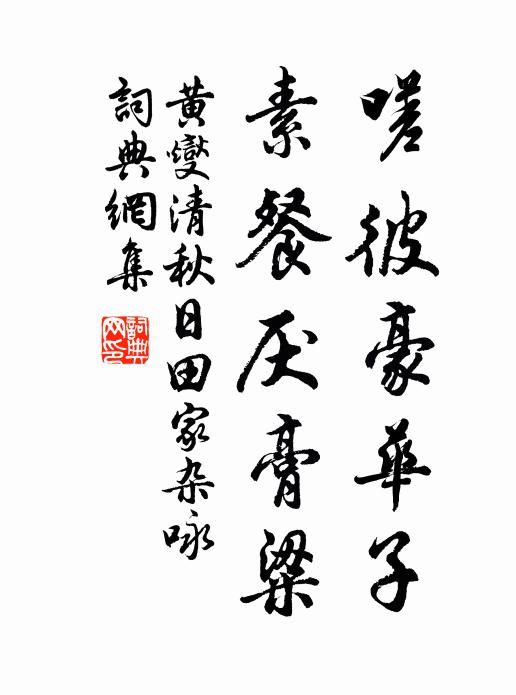 嗟彼豪華子
素餐厌膏粱
黄燮清秋日田家杂咏
詞典網集
詞典网印